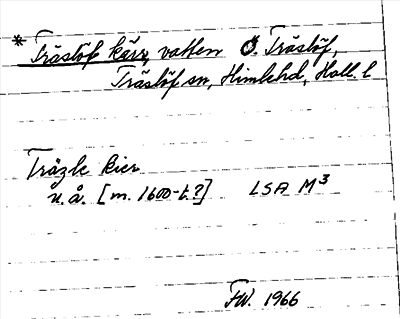 * Träslöf kärr, vatten Ö. Träslöf,
Träslöf sn, Himlehd, Hall. l
Tråzle kier
u.å. [m. 1600-t.?] LSA M³
FW. 1966